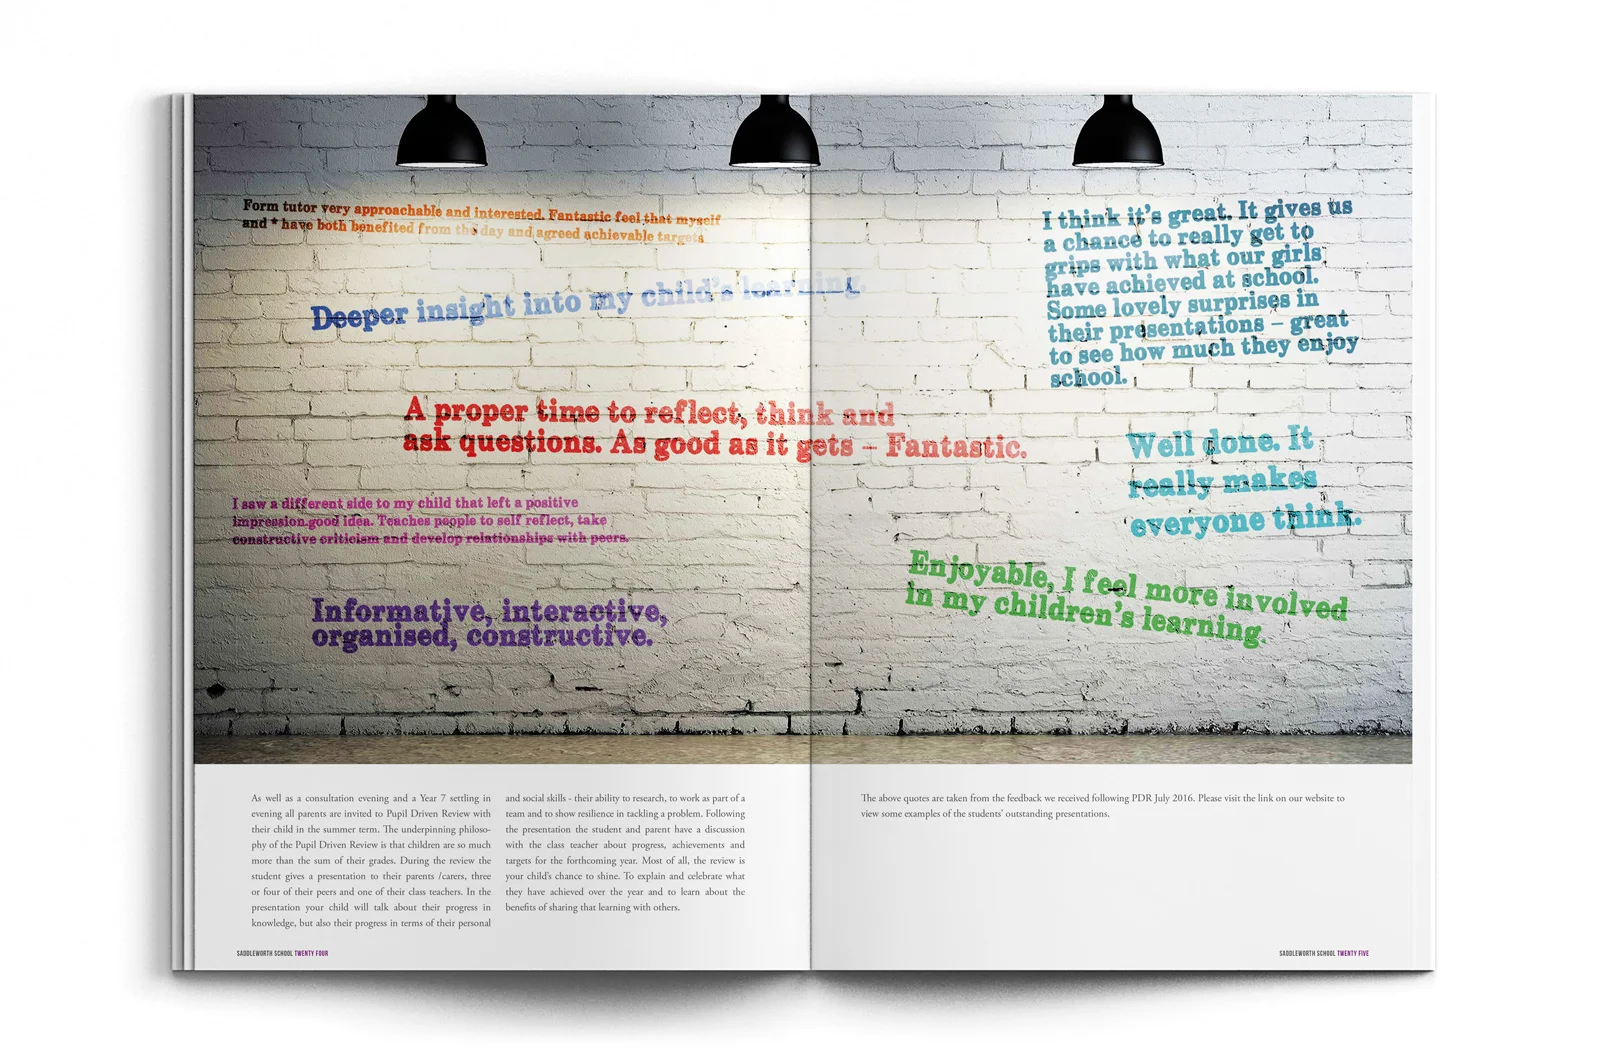 Form tutor very approachable and interested. Fantastic feel that myself
and * have both benefited from the day and agreed achievable targets
Deeper insight into my child's learning.
A proper time to reflect, think and
ask questions. As good as it gets – Fantastic.
I saw a different side to my child that left a positive
impression.good idea. Teaches people to self reflect, take
constructive criticism and develop relationships with peers.
Informative, interactive,
organised, constructive.
I think it's great. It gives us
a chance to really get to
grips with what our girls
have achieved at school.
Some lovely surprises in
their presentations – great
to see how much they enjoy
school.
Well done. It
really makes
everyone think.
Enjoyable, I feel more involved
in my children's learning.
As well as a consultation evening and a Year 7 settling in
evening all parents are invited to Pupil Driven Review with
their child in the summer term. The underpinning philoso-
phy of the Pupil Driven Review is that children are so much
more than the sum of their grades. During the review the
student gives a presentation to their parents /carers, three
or four of their peers and one of their class teachers. In the
presentation your child will talk about their progress in
knowledge, but also their progress in terms of their personal
and social skills - their ability to research, to work as part of a
team and to show resilience in tackling a problem. Following
the presentation the student and parent have a discussion
with the class teacher about progress, achievements and
targets for the forthcoming year. Most of all, the review is
your child's chance to shine. To explain and celebrate what
they have achieved over the year and to learn about the
benefits of sharing that learning with others.
The above quotes are taken from the feedback we received following PDR July 2016. Please visit the link on our website to
view some examples of the students' outstanding presentations.
SADDLEWORTH SCHOOL TWENTY FOUR
SADDLEWORTH SCHOOL TWENTY FIVE